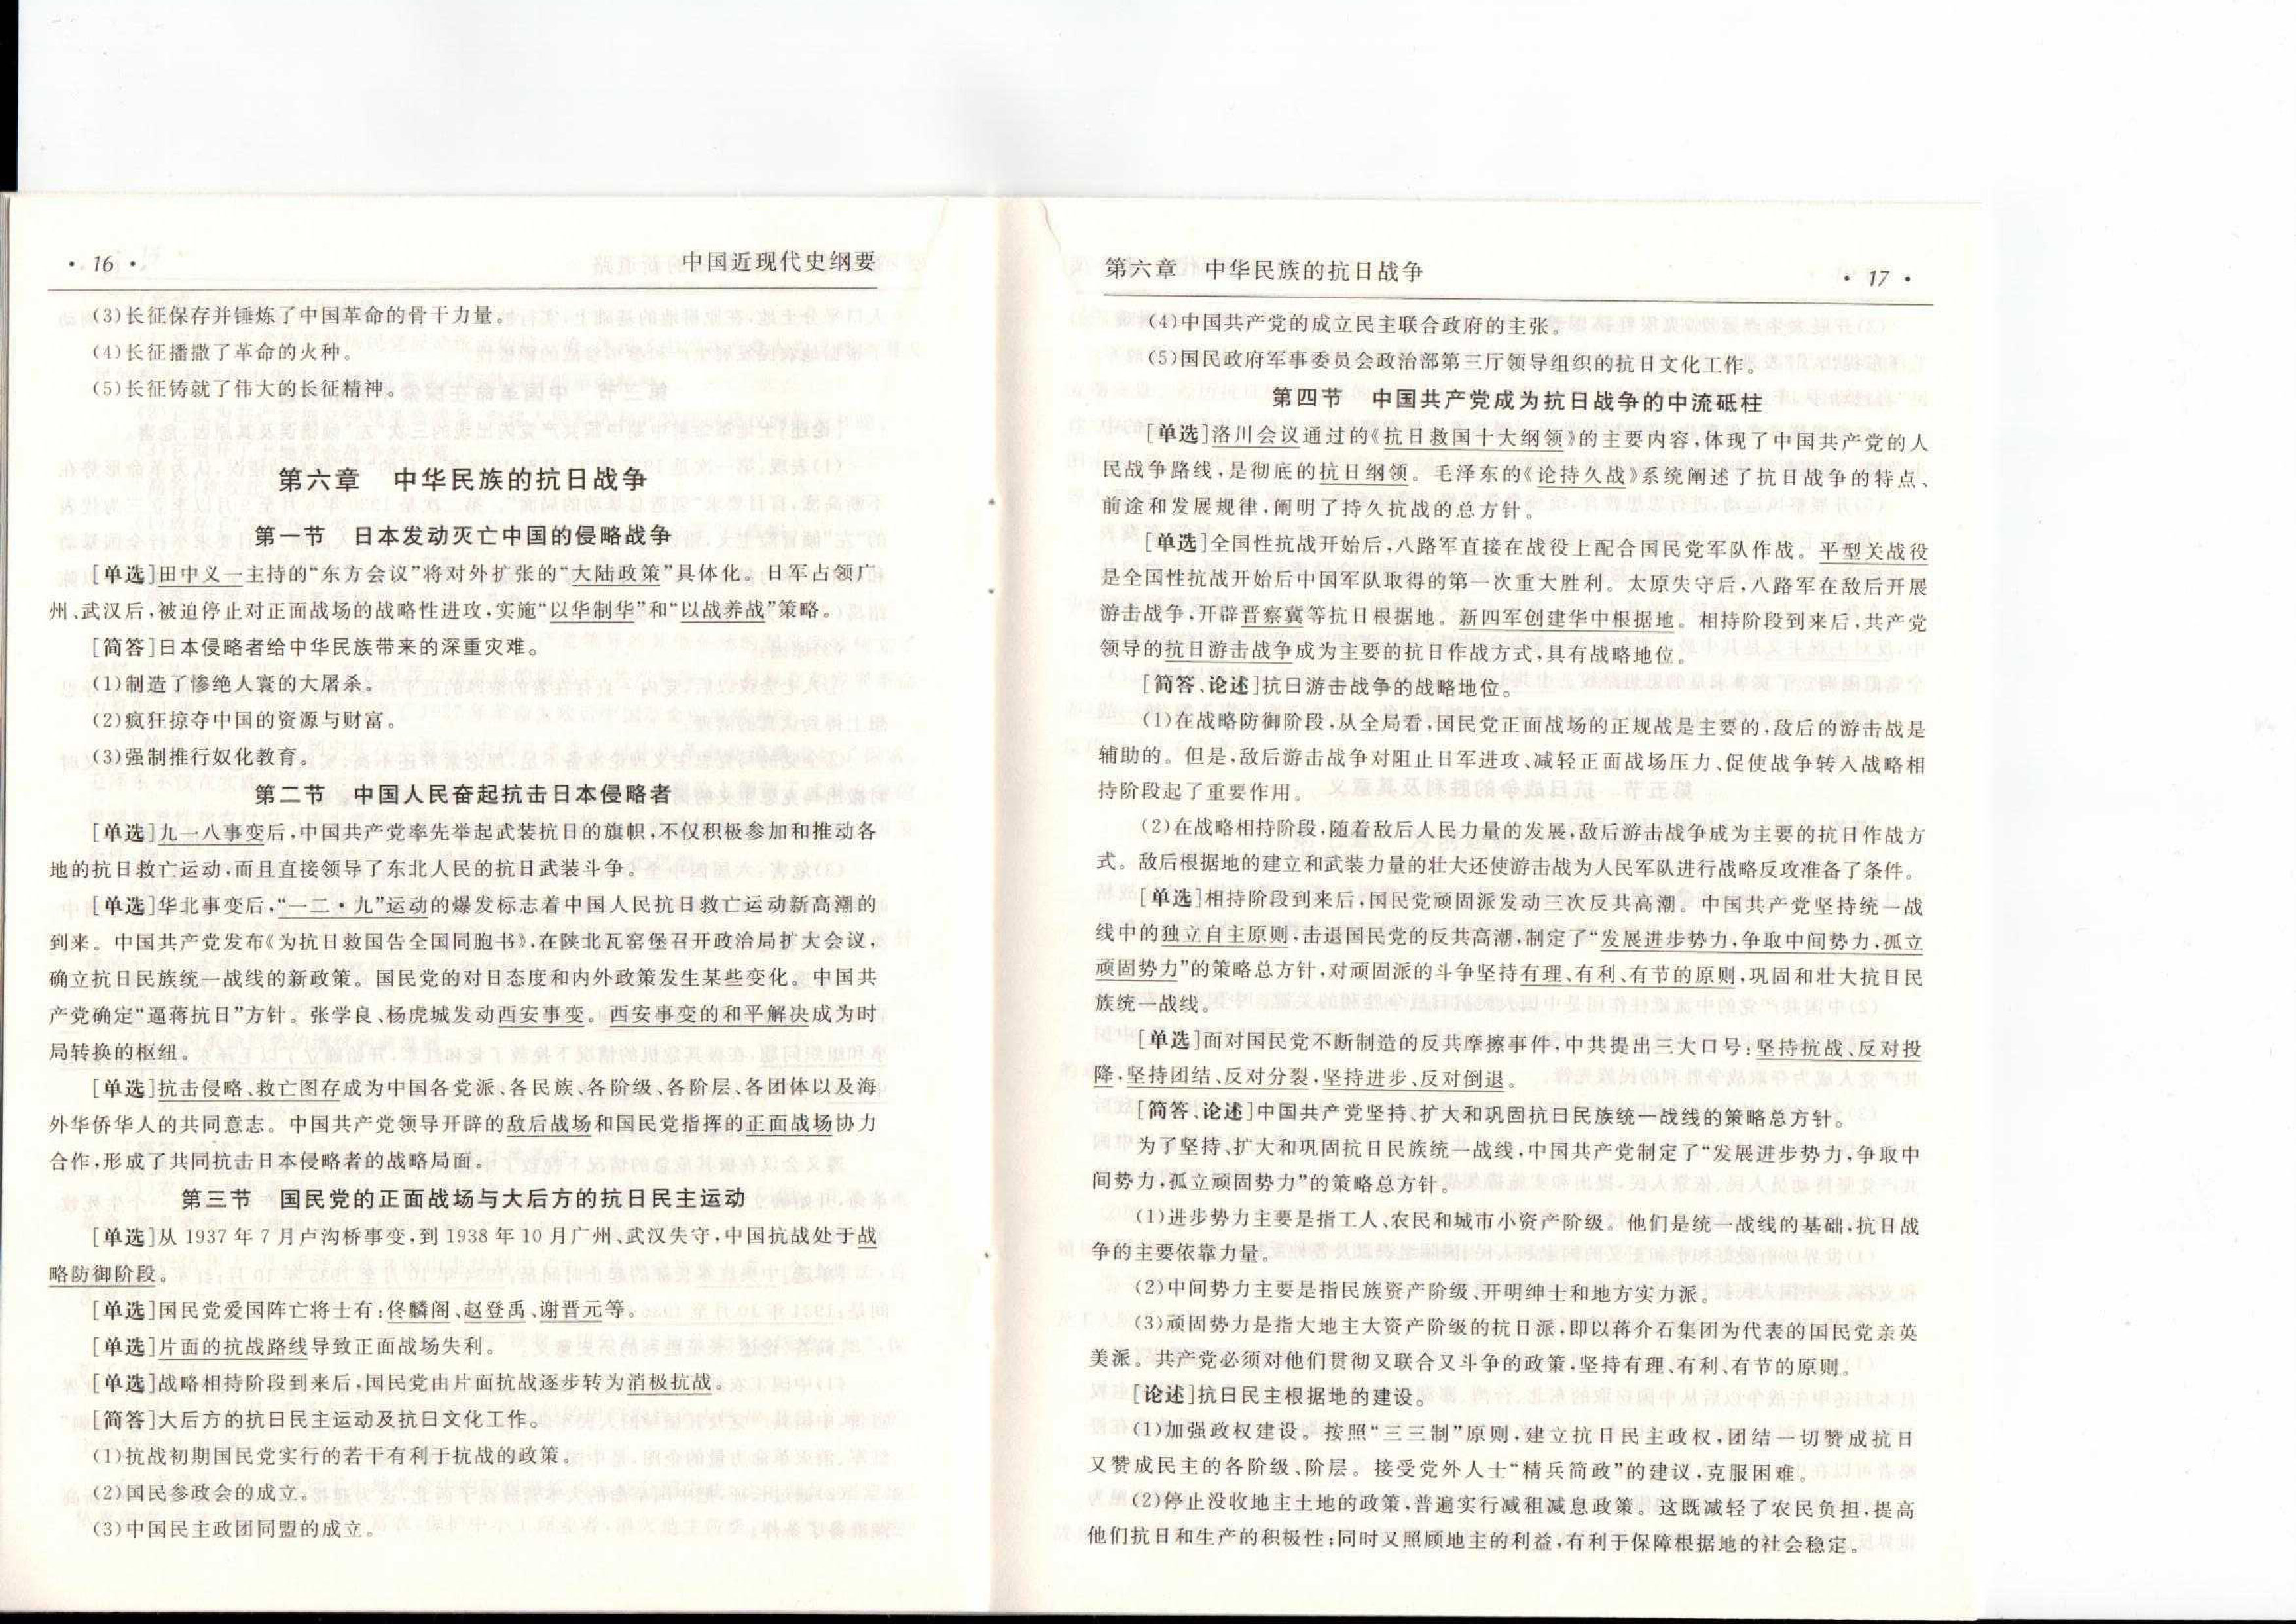 · 16 ·
中国近现代史纲要
(3)长征保存并锤炼了中国革命的骨干力量。
(4)长征播撒了革命的火种。
(5)长征铸就了伟大的长征精神。
第六章 中华民族的抗日战争
第一节 日本发动灭亡中国的侵略战争
[单选]田中义一主持的“东方会议”将对外扩张的“大陆政策”具体化。日军占领广
州、武汉后,被迫停止对正面战场的战略性进攻,实施“以华制华”和“以战养战”策略。
[简答]日本侵略者给中华民族带来的深重灾难。
(1)制造了惨绝人寰的大屠杀。
(2)疯狂掠夺中国的资源与财富。
(3)强制推行奴化教育。
第二节 中国人民奋起抗击日本侵略者
[单选]九一八事变后,中国共产党率先举起武装抗日的旗帜,不仅积极参加和推动各
地的抗日救亡运动,而且直接领导了东北人民的抗日武装斗争。
[单选]华北事变后,“一二·九”运动的爆发标志着中国人民抗日救亡运动新高潮的
到来。中国共产党发布《为抗日救国告全国同胞书》,在陕北瓦窑堡召开政治局扩大会议,
确立抗日民族统一战线的新政策。国民党的对日态度和内外政策发生某些变化。中国共
产党确定“逼蒋抗日”方针。张学良、杨虎城发动西安事变。西安事变的和平解决成为时
局转换的枢纽。
[单选]抗击侵略、救亡图存成为中国各党派、各民族、各阶级、各阶层、各团体以及海
外华侨华人的共同意志。中国共产党领导开辟的敌后战场和国民党指挥的正面战场协力
合作,形成了共同抗击日本侵略者的战略局面。
第三节 国民党的正面战场与大后方的抗日民主运动
[单选]从 1937 年 7 月卢沟桥事变,到 1938 年 10 月广州、武汉失守,中国抗战处于战
略防御阶段。
[单选]国民党爱国阵亡将士有:佟麟阁、赵登禹、谢晋元等。
[单选]片面的抗战路线导致正面战场失利。
[单选]战略相持阶段到来后,国民党由片面抗战逐步转为消极抗战。
[简答]大后方的抗日民主运动及抗日文化工作。
(1)抗战初期国民党实行的若干有利于抗战的政策。
(2)国民参政会的成立。
(3)中国民主政团同盟的成立。
第六章 中华民族的抗日战争
· 17 ·
(4)中国共产党的成立民主联合政府的主张。
(5)国民政府军事委员会政治部第三厅领导组织的抗日文化工作。
第四节 中国共产党成为抗日战争的中流砥柱
[单选]洛川会议通过的《抗日救国十大纲领》的主要内容,体现了中国共产党的人
民战争路线,是彻底的抗日纲领。毛泽东的《论持久战》系统阐述了抗日战争的特点、
前途和发展规律,阐明了持久抗战的总方针。
[单选]全国性抗战开始后,八路军直接在战役上配合国民党军队作战。平型关战役
是全国性抗战开始后中国军队取得的第一次重大胜利。太原失守后,八路军在敌后开展
游击战争,开辟晋察冀等抗日根据地。新四军创建华中根据地。相持阶段到来后,共产党
领导的抗日游击战争成为主要的抗日作战方式,具有战略地位。
[简答、论述]抗日游击战争的战略地位。
(1)在战略防御阶段,从全局看,国民党正面战场的正规战是主要的,敌后的游击战是
辅助的。但是,敌后游击战争对阻止日军进攻、减轻正面战场压力、促使战争转入战略相
持阶段起了重要作用。
(2)在战略相持阶段,随着敌后人民力量的发展,敌后游击战争成为主要的抗日作战方
式。敌后根据地的建立和武装力量的壮大还使游击战为人民军队进行战略反攻准备了条件。
[单选]相持阶段到来后,国民党顽固派发动三次反共高潮。中国共产党坚持统一战
线中的独立自主原则,击退国民党的反共高潮,制定了“发展进步势力,争取中间势力,孤立
顽固势力”的策略总方针,对顽固派的斗争坚持有理、有利、有节的原则,巩固和壮大抗日民
族统一战线。
[单选]面对国民党不断制造的反共摩擦事件,中共提出三大口号:坚持抗战、反对投
降,坚持团结、反对分裂,坚持进步、反对倒退。
[简答、论述]中国共产党坚持、扩大和巩固抗日民族统一战线的策略总方针。
为了坚持、扩大和巩固抗日民族统一战线,中国共产党制定了“发展进步势力,争取中
间势力,孤立顽固势力”的策略总方针。
(1)进步势力主要是指工人、农民和城市小资产阶级。他们是统一战线的基础,抗日战
争的主要依靠力量。
(2)中间势力主要是指民族资产阶级、开明绅士和地方实力派。
(3)顽固势力是指大地主大资产阶级的抗日派,即以蒋介石集团为代表的国民党亲英
美派。共产党必须对他们贯彻又联合又斗争的政策,坚持有理、有利、有节的原则。
[论述]抗日民主根据地的建设。
(1)加强政权建设。按照“三三制”原则,建立抗日民主政权,团结一切赞成抗日
又赞成民主的各阶级、阶层。接受党外人士“精兵简政”的建议,克服困难。
(2)停止没收地主土地的政策,普遍实行减租减息政策。这既减轻了农民负担,提高
他们抗日和生产的积极性;同时又照顾地主的利益,有利于保障根据地的社会稳定。